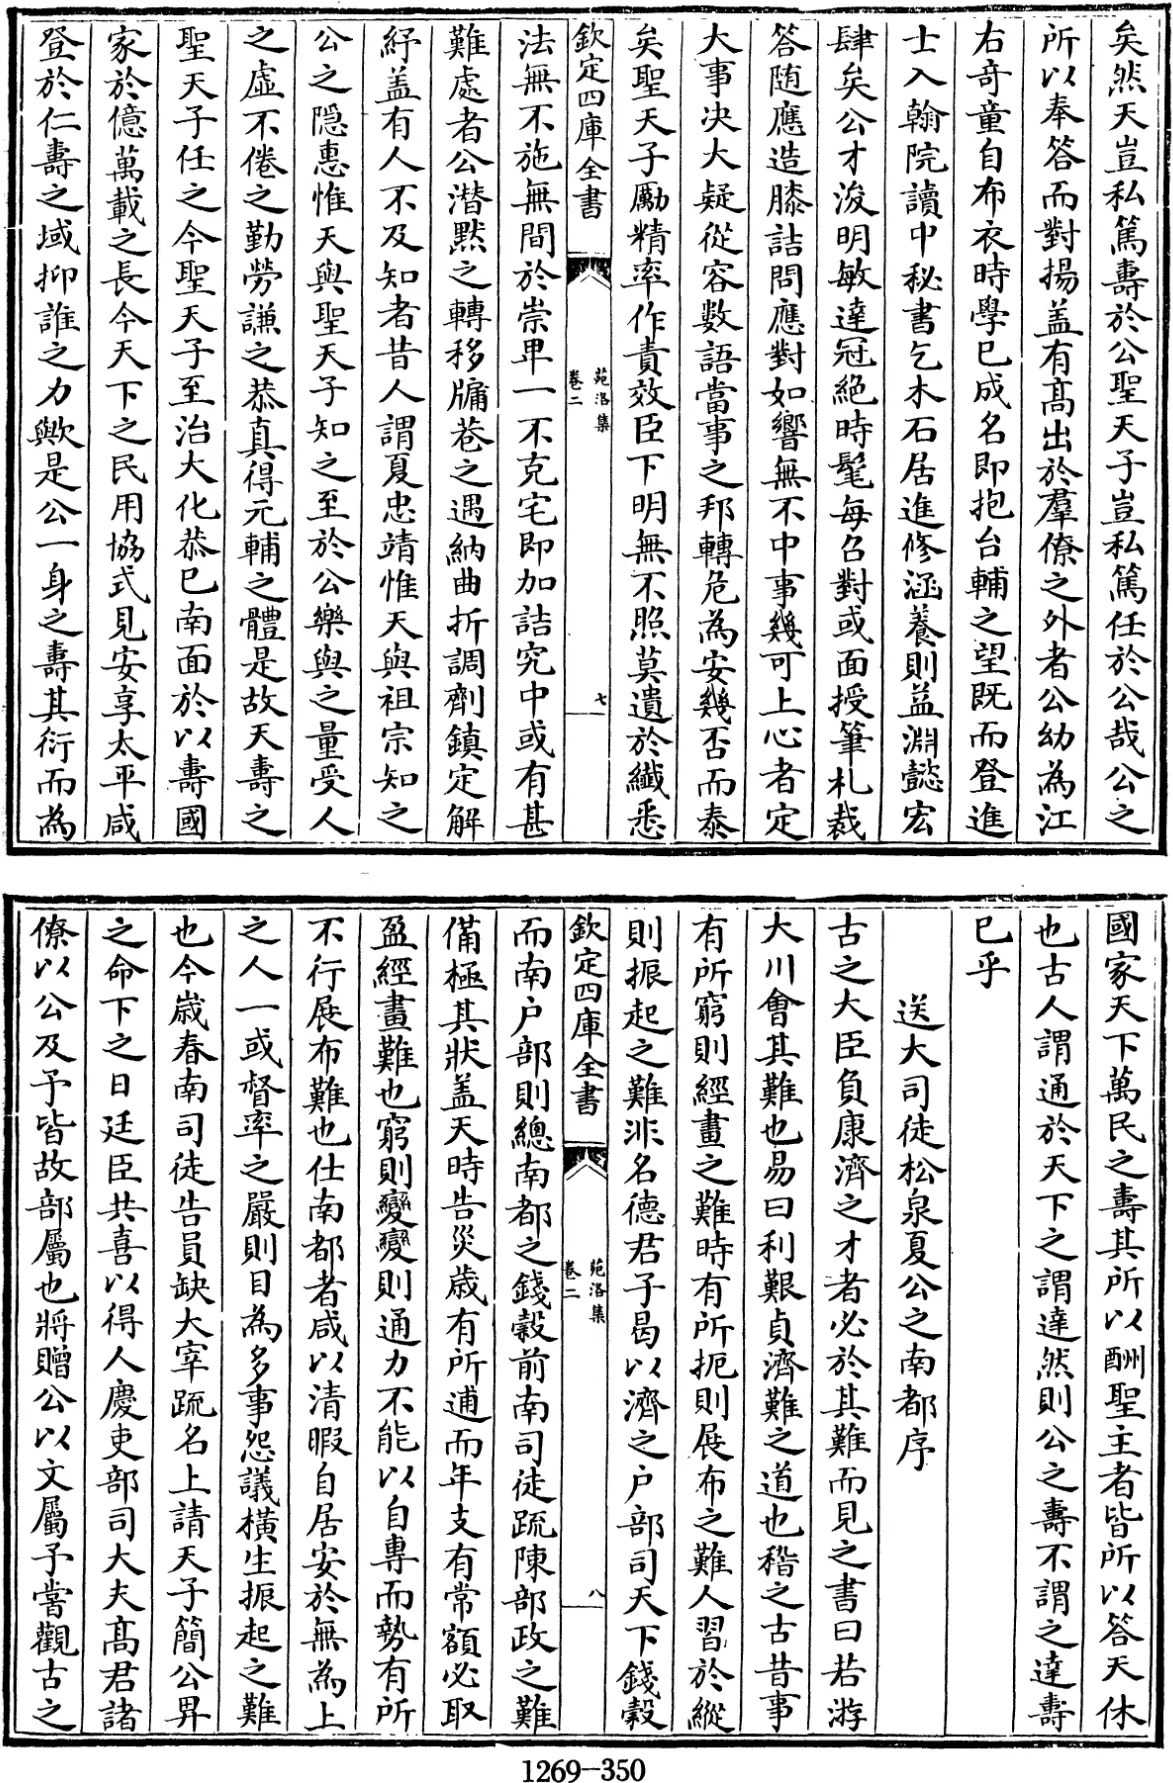 矣然天豈私篤壽於公聖天子豈私篤任於公哉公之
所以奉答而對揚盖有髙出於羣僚之外者公幼為江
右竒童自布衣時學已成名即抱台輔之望既而登進
士入翰院讀中秘書乞木石居進修涵養則益淵懿宏
肆矣公才浚明敏達冠絶時髦每召對或面授筆札裁
答随應造膝詰問應對如響無不中事幾可上心者定
大事决大疑從容數語當事之邦轉危為安幾否而泰
矣聖天子勵精率作責效臣下明無不照莫遺於纖悉
欽定四庫全書
苑洛集
卷二
七
法無不施無間於崇卑一不克宅即加詰究中或有甚
難處者公潜默之轉移牖巷之遇納曲折調劑鎮定解
紓盖有人不及知者昔人謂夏忠靖惟天與祖宗知之
公之隠惠惟天與聖天子知之至於公樂與之量受人
之虛不倦之勤勞謙之恭真得元輔之體是故天壽之
聖天子任之今聖天子至治大化恭已南面於以壽國
家於億萬載之長今天下之民用協式見安享太平咸
登於仁壽之域抑誰之力歟是公一身之壽其衍而為
國家天下萬民之壽其所以酬聖主者皆所以答天休
也古人謂通於天下之謂達然則公之壽不謂之達壽
已乎
送大司徒松泉夏公之南都序
古之大臣負康濟之才者必於其難而見之書曰若游
大川會其難也易曰利艱貞濟難之道也稽之古昔事
有所窮則經畫之難時有所扼則展布之難人習於縱
則振起之難非名德君子曷以濟之户部司天下錢穀
欽定四庫全書
苑洛集
卷二
八
而南户部則總南都之錢穀前南司徒疏陳部政之難
備極其狀盖天時告災歳有所逋而年支有常額必取
盈經畫難也窮則變變則通力不能以自專而勢有所
不行展布難也仕南都者咸以清暇自居安於無為上
之人一或督率之嚴則目為多事怨議橫生振起之難
也今歳春南司徒告員缺大宰疏名上請天子簡公昇
之命下之日廷臣共喜以得人慶吏部司大夫髙君諸
僚以公及予皆故部屬也將贈公以文屬予甞觀古之
1269-350